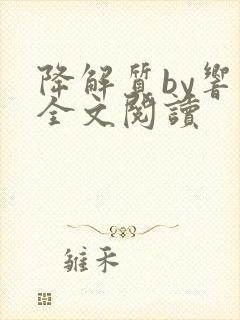 降解質by響
全文閱讀
雒禾